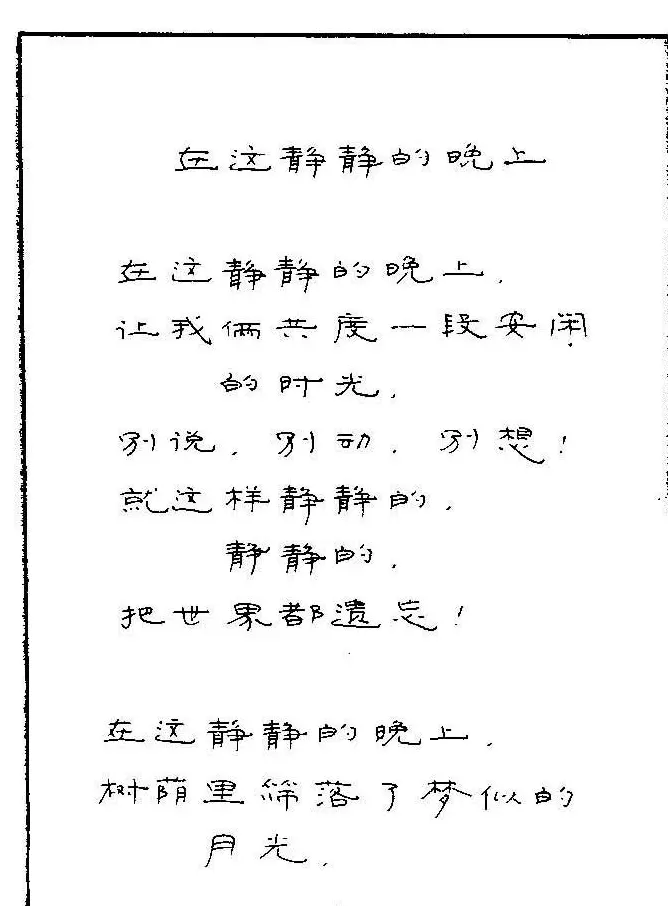 在这静静的晚上
在这静静的晚上，
让我俩共度一段安闲
的时光，
别说，别动，别想！
就这样静静的，
静静的，
把世界都遗忘！
在这静静的晚上，
树荫里筛落了梦似的
月光，